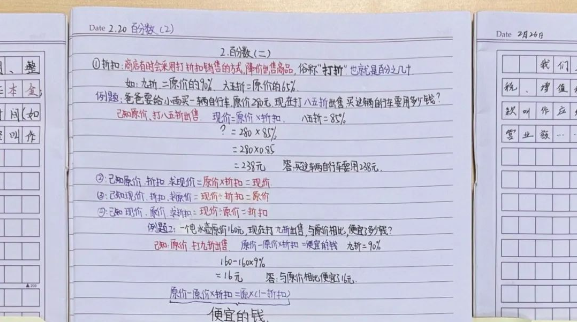 Date 2.20 百分数(2)
2.百分数(二)
①折扣:商店有时会采用打折扣销售的方式,降价出售商品,俗称"打折"也就是百分之几十
如:九折=原价的90% 六五折=原价的65%
例题:爸爸要给小雨买一辆自行车,原价280元,现在打八五折出售,买这辆自行车要用多少钱?
已知原价,打八五折出售 现价=原价×折扣 八五折=85%
? = 280×85%
= 280×0.85
= 238元 答:买这辆自行车要用238元.
①已知原价,折扣,求现价=原价×折扣=现价
②已知现价,折扣,求原价=现价÷折扣=原价
③已知现价,原价,求折扣=现价÷原价=折扣
例题2:一个电水壶原价160元,现在打九折出售,与原价相比,便宜了多少钱?
已知:原价 打九折出售 原价-原价×折扣=便宜的钱 九折=90%
160-160×90%
=16元 答:与原价相比便宜了16元.
原价-原价×折扣=原×(1-折扣)
便宜的钱.
Date 2月26日
我们
税、增值
营业额…